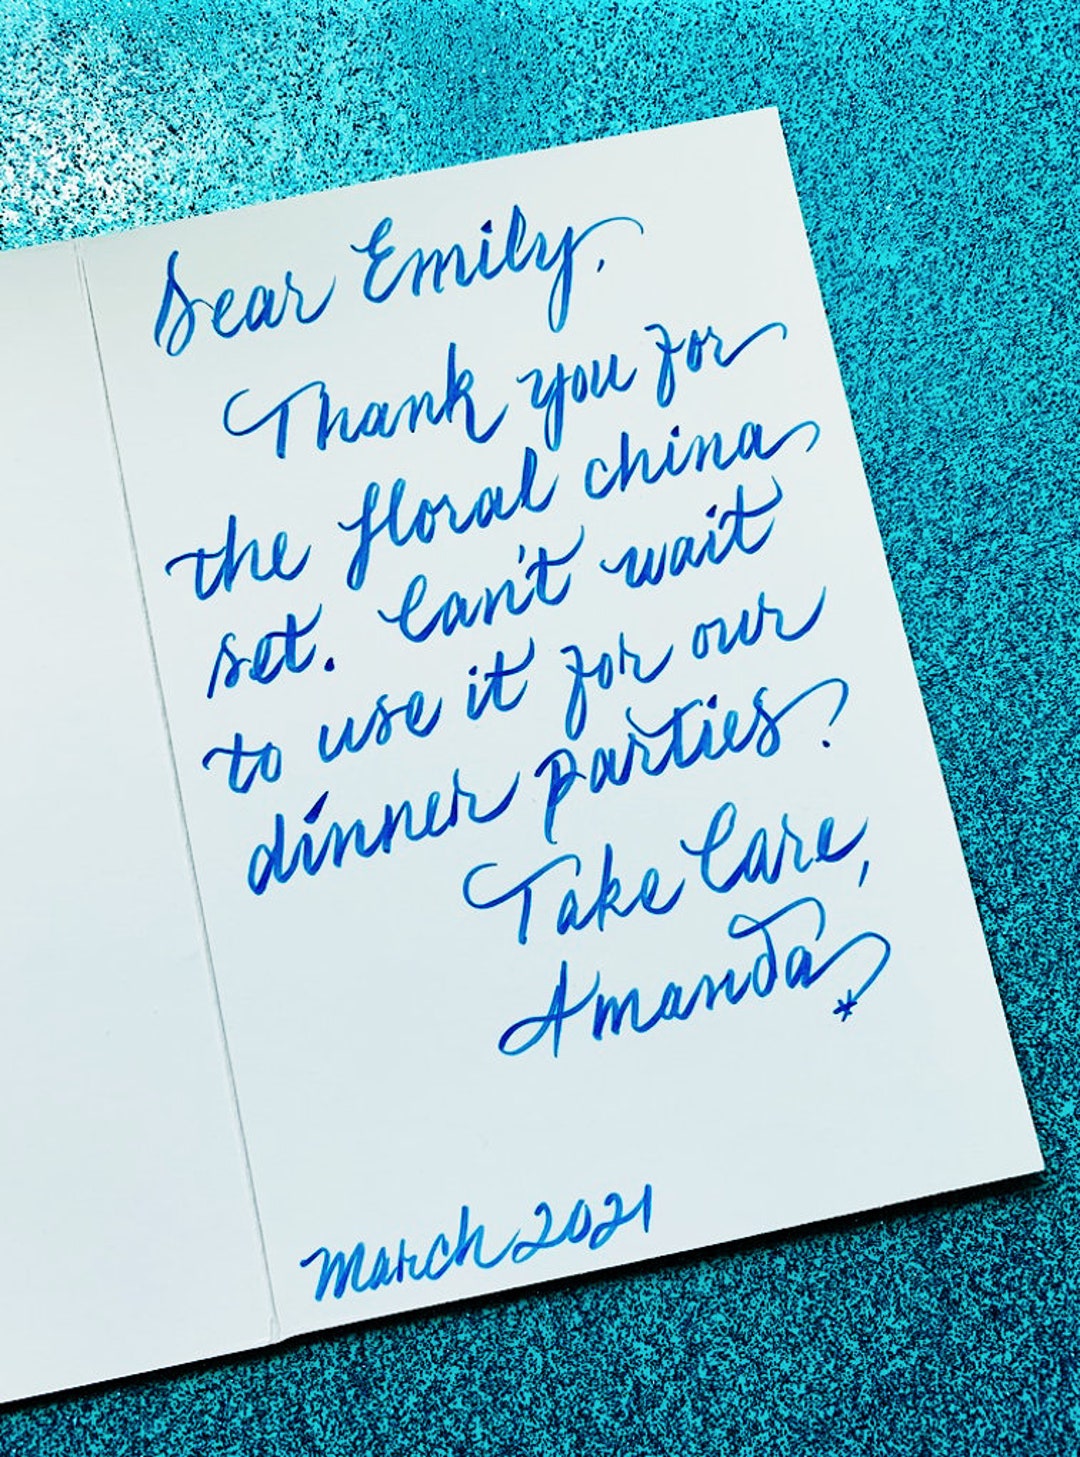 Dear Emily,
Thank you for
the floral china
set. Can't wait
to use it for our
dinner parties?
Take Care,
Amanda
*
March 2021